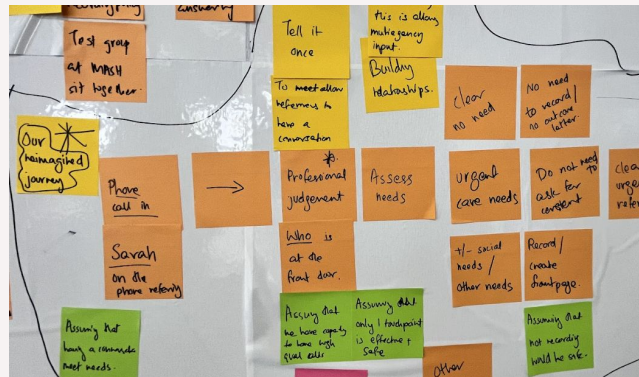 answering
Test group
at MASH
sit together.
Tell it
once
this is allow
multiagency
input.
To meet allow
referrers to
have a
conversation
Building
relationships.
clear
no need
No need
to record/
no outcome
letter.
Our
reimagined
journey
Phone
call in
→
Professional
judgement
Assess
needs
urgent
care needs
Do not need
to
ask for
consent
clear
urge
refer
Sarah
on the
phone referring
Who is
at the
front door.
+/- social
needs /
other needs
Record/
create
frontpage.
Assuming that
having a conversation
meet needs.
Assuming that
we have capacity
to have high
qual calls
Assuming that
only 1 touchpoint
is effective +
safe
Assuming that
not recording
would be safe.
Other